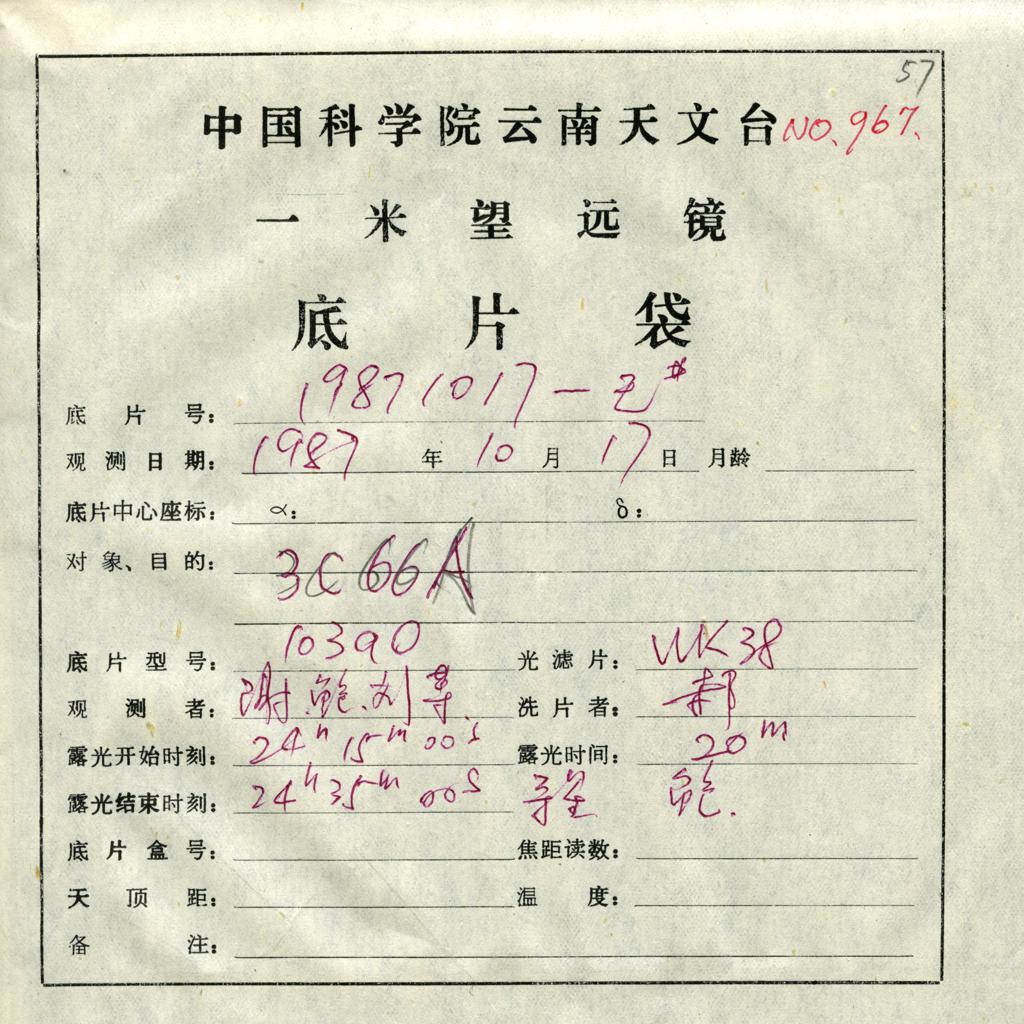 57
中国科学院云南天文台 NO.967.
一米望远镜
底片袋
底片号: 19871017-乙#
观测日期: 1987 年 10 月 17 日 月龄
底片中心座标: α: δ:
对象、目的: 3C66A
底片型号: 103aO 光滤片: UK38
观测者: 谢.鲍.刘等. 洗片者: 郝
露光开始时刻: 24h 15m 00s 露光时间: 20m
露光结束时刻: 24h 35m 00s 导星 鲍.
底片盒号: 焦距读数:
天顶距: 温度:
备注: